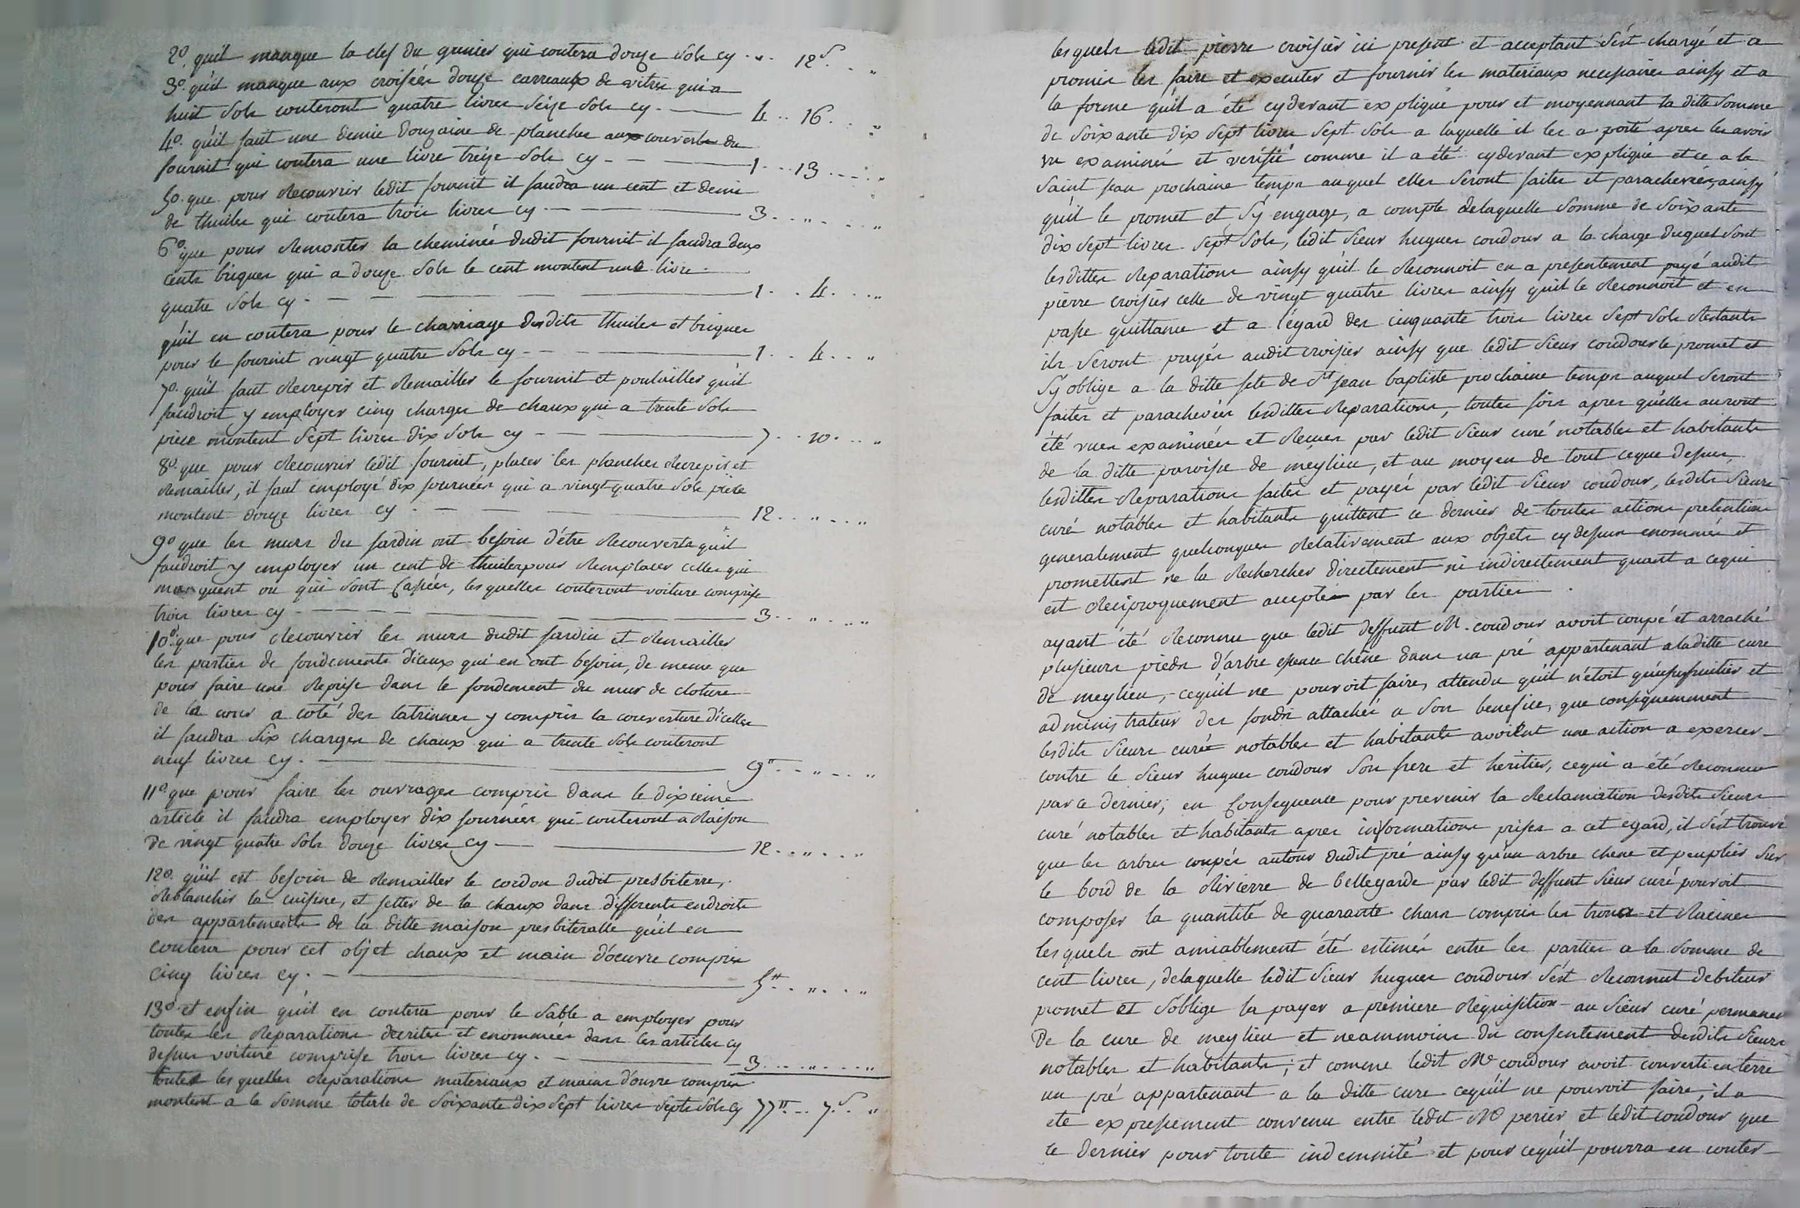 2° qu'il manque la clef du grenier qui coutera douze sols cy .. 12 s. ..
3° qu'il manque aux croisées douze carreaux de vitre qui a
huit sols couteront quatre livres seize sols cy — 4 .. 16 ..
4° qu'il faut une demie douzaine de planches aux couverts du
fournit qui coutera une livre treize sols cy — 1 .. 13 ..
5° que pour recouvrir ledit fournit il faudra un cent et demi
de thuiles qui coutera trois livres cy — 3 .. „ .. „
6° que pour remonter la cheminée dudit fournit il faudra deux
cents briques qui a douze sols le cent montent une livre
quatre sols cy — 1 .. 4 .. „
qu'il en coutera pour le charriage desdits thuiles et briques
pour le fournit vingt quatre sols cy — 1 .. 4 .. „
7° qu'il faut recrepir et remailler le fournit et poulailler qu'il
faudroit y employer cinq charges de chaux qui a trente sols
piece montent sept livres dix sols cy — 7 .. 10 .. „
8° que pour recouvrir ledit fournit, placer les planches recrepir et
remailler, il faut employé dix journées qui a vingt quatre sols piece
montent douze livres cy — 12 .. „ .. „
9° que les murs du jardin ont besoin d'être recouverts qu'il
faudroit y employer un cent de thuiles pour remplacer celles qui
manquent ou qui sont cassées, lesquelles couteront voiture comprise
trois livres cy — 3 .. „ .. „
10° que pour recouvrir les murs dudit jardin et remailler
les parties de fondements d'iceux qui en ont besoin, de meme que
pour faire une reprise dans le fondement du mur de cloture
de la cour a coté des latrinnes y compris la couverture d'icelles
il faudra six charges de chaux qui a trente sols couteront
neuf livres cy — 9 tt .. „ .. „
11° que pour faire les ouvrages compris dans le dixieme
article il faudra employer dix journées qui couteront a raison
de vingt quatre sols douze livres cy — 12 .. „ .. „
12° qu'il est besoin de remailler le cordon dudit presbiterre,
reblanchir la cuisine, et jetter de la chaux dans differents endroits
des appartements de la ditte maison presbiteralle qu'il en
coutera pour cet objet chaux et main d'oeuvre compris
cinq livres cy — 5 tt .. „ .. „
13° et enfin qu'il en coutera pour le sable a employer pour
toutes les reparations decrites et enommées dans les articles cy
dessus voiture comprise trois livres cy — 3 .. „ .. „
toutes lesquelles reparations materiaux et mains d'ouvre compris
montent a la somme totale de soixante dix sept livres sept sols cy 77 tt .. 7 s. „
lesquels ledit pierre croisier ici present et acceptant s'est chargé et a
promis les faire et executer et fournir les materiaux necessaires ainsy et a
la forme qu'il a été cydevant expliqué pour et moyennant la ditte somme
de soixante dix sept livres sept sols a laquelle il les a porté apres les avoir
vu examinés et vérifié comme il a été cydevant expliqué et ce a la
saint jean prochaine temps auquel elles seront faites et parachevées ainsy
qu'il le promet et s'y engage, a compte delaquelle somme de soixante
dix sept livres sept sols, ledit sieur hugues coudour a la charge duquel sont
lesdittes reparations ainsy qu'il le reconnoit en a presentement payé audit
pierre croisier celle de vingt quatre livres ainsy qu'il le reconnoit et en
passe quittance et a l'égard des cinquante trois livres sept sols restants
ils seront payés audit croisier ainsy que ledit sieur coudour le promet et
s'y oblige a la ditte fete de St jean baptiste prochaine temps auquel seront
faites et parachevées lesdittes reparations, toutes fois apres qu'elles auront
été vues examinées et reçues par ledit sieur curé notables et habitants
de la ditte paroisse de meylieu, et au moyen de tout ceque dessus
lesdittes reparations faites et payés par ledit sieur coudour, lesdits sieurs
curé notables et habitants quittent ce dernier de toutes actions pretentions
generalement quelconques relativement aux objets cydessus enommés et
promettent ne le rechercher directement ni indirectement quant a cequi
est reciproquement accepté par les parties.
ayant été reconnu que ledit deffunt M. coudour avoit coupé et arraché
plusieurs pieds d'arbre essence chêne dans un pré appartenant a laditte cure
de meylieu, cequ'il ne pouvoit faire, attendu qu'il n'étoit qu'usufruitier et
administrateur des fonds attachés a son benefice, que consequemment
lesdits sieurs curé notables et habitants avoient une action a exercer
contre le sieur hugues coudour son frere et heritier, cequi a été reconnu
par ce dernier; en consequence pour prevenir la reclamation desdits sieurs
curé notables et habitants apres informations prises a cet egard, il s'est trouvé
que les arbres coupés autour dudit pré ainsy qu'un arbre chene et peuplier sur
le bord de la rivierre de bellegarde par ledit deffunt sieur curé pouvoit
composer la quantité de quarante chars compris les troncs et racines
lesquels ont amiablement été estimés entre les parties a la somme de
cent livres, delaquelle ledit sieur hugues coudour s'est reconnut debiteur
promet et s'oblige la payer a premiere requisition au sieur curé
de la cure de meylieu et neammoins du consentement desdits sieurs
notables et habitants; et comme ledit Mr coudour avoit converti en terre
un pré appartenant a la ditte cure cequ'il ne pouvoit faire, il a
eté expressement convenu entre ledit Mr perier et ledit coudour que
ce dernier pour toute indemnité et pour cequ'il pourra en couter